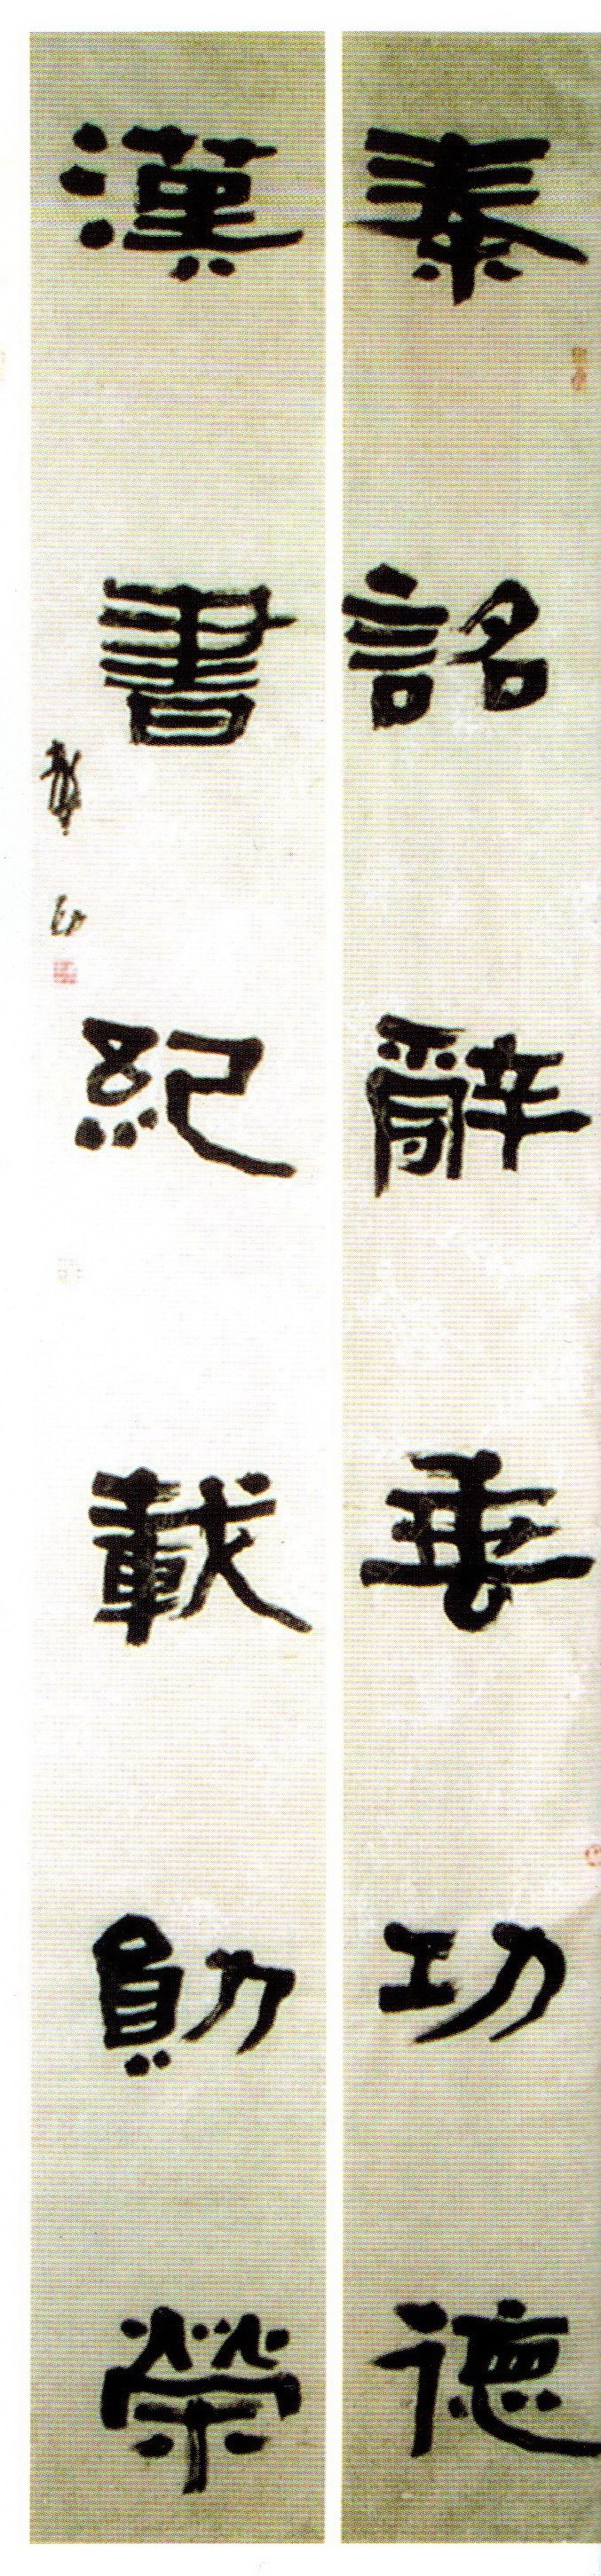 秦詺辭垂功德
漢書紀載勛榮